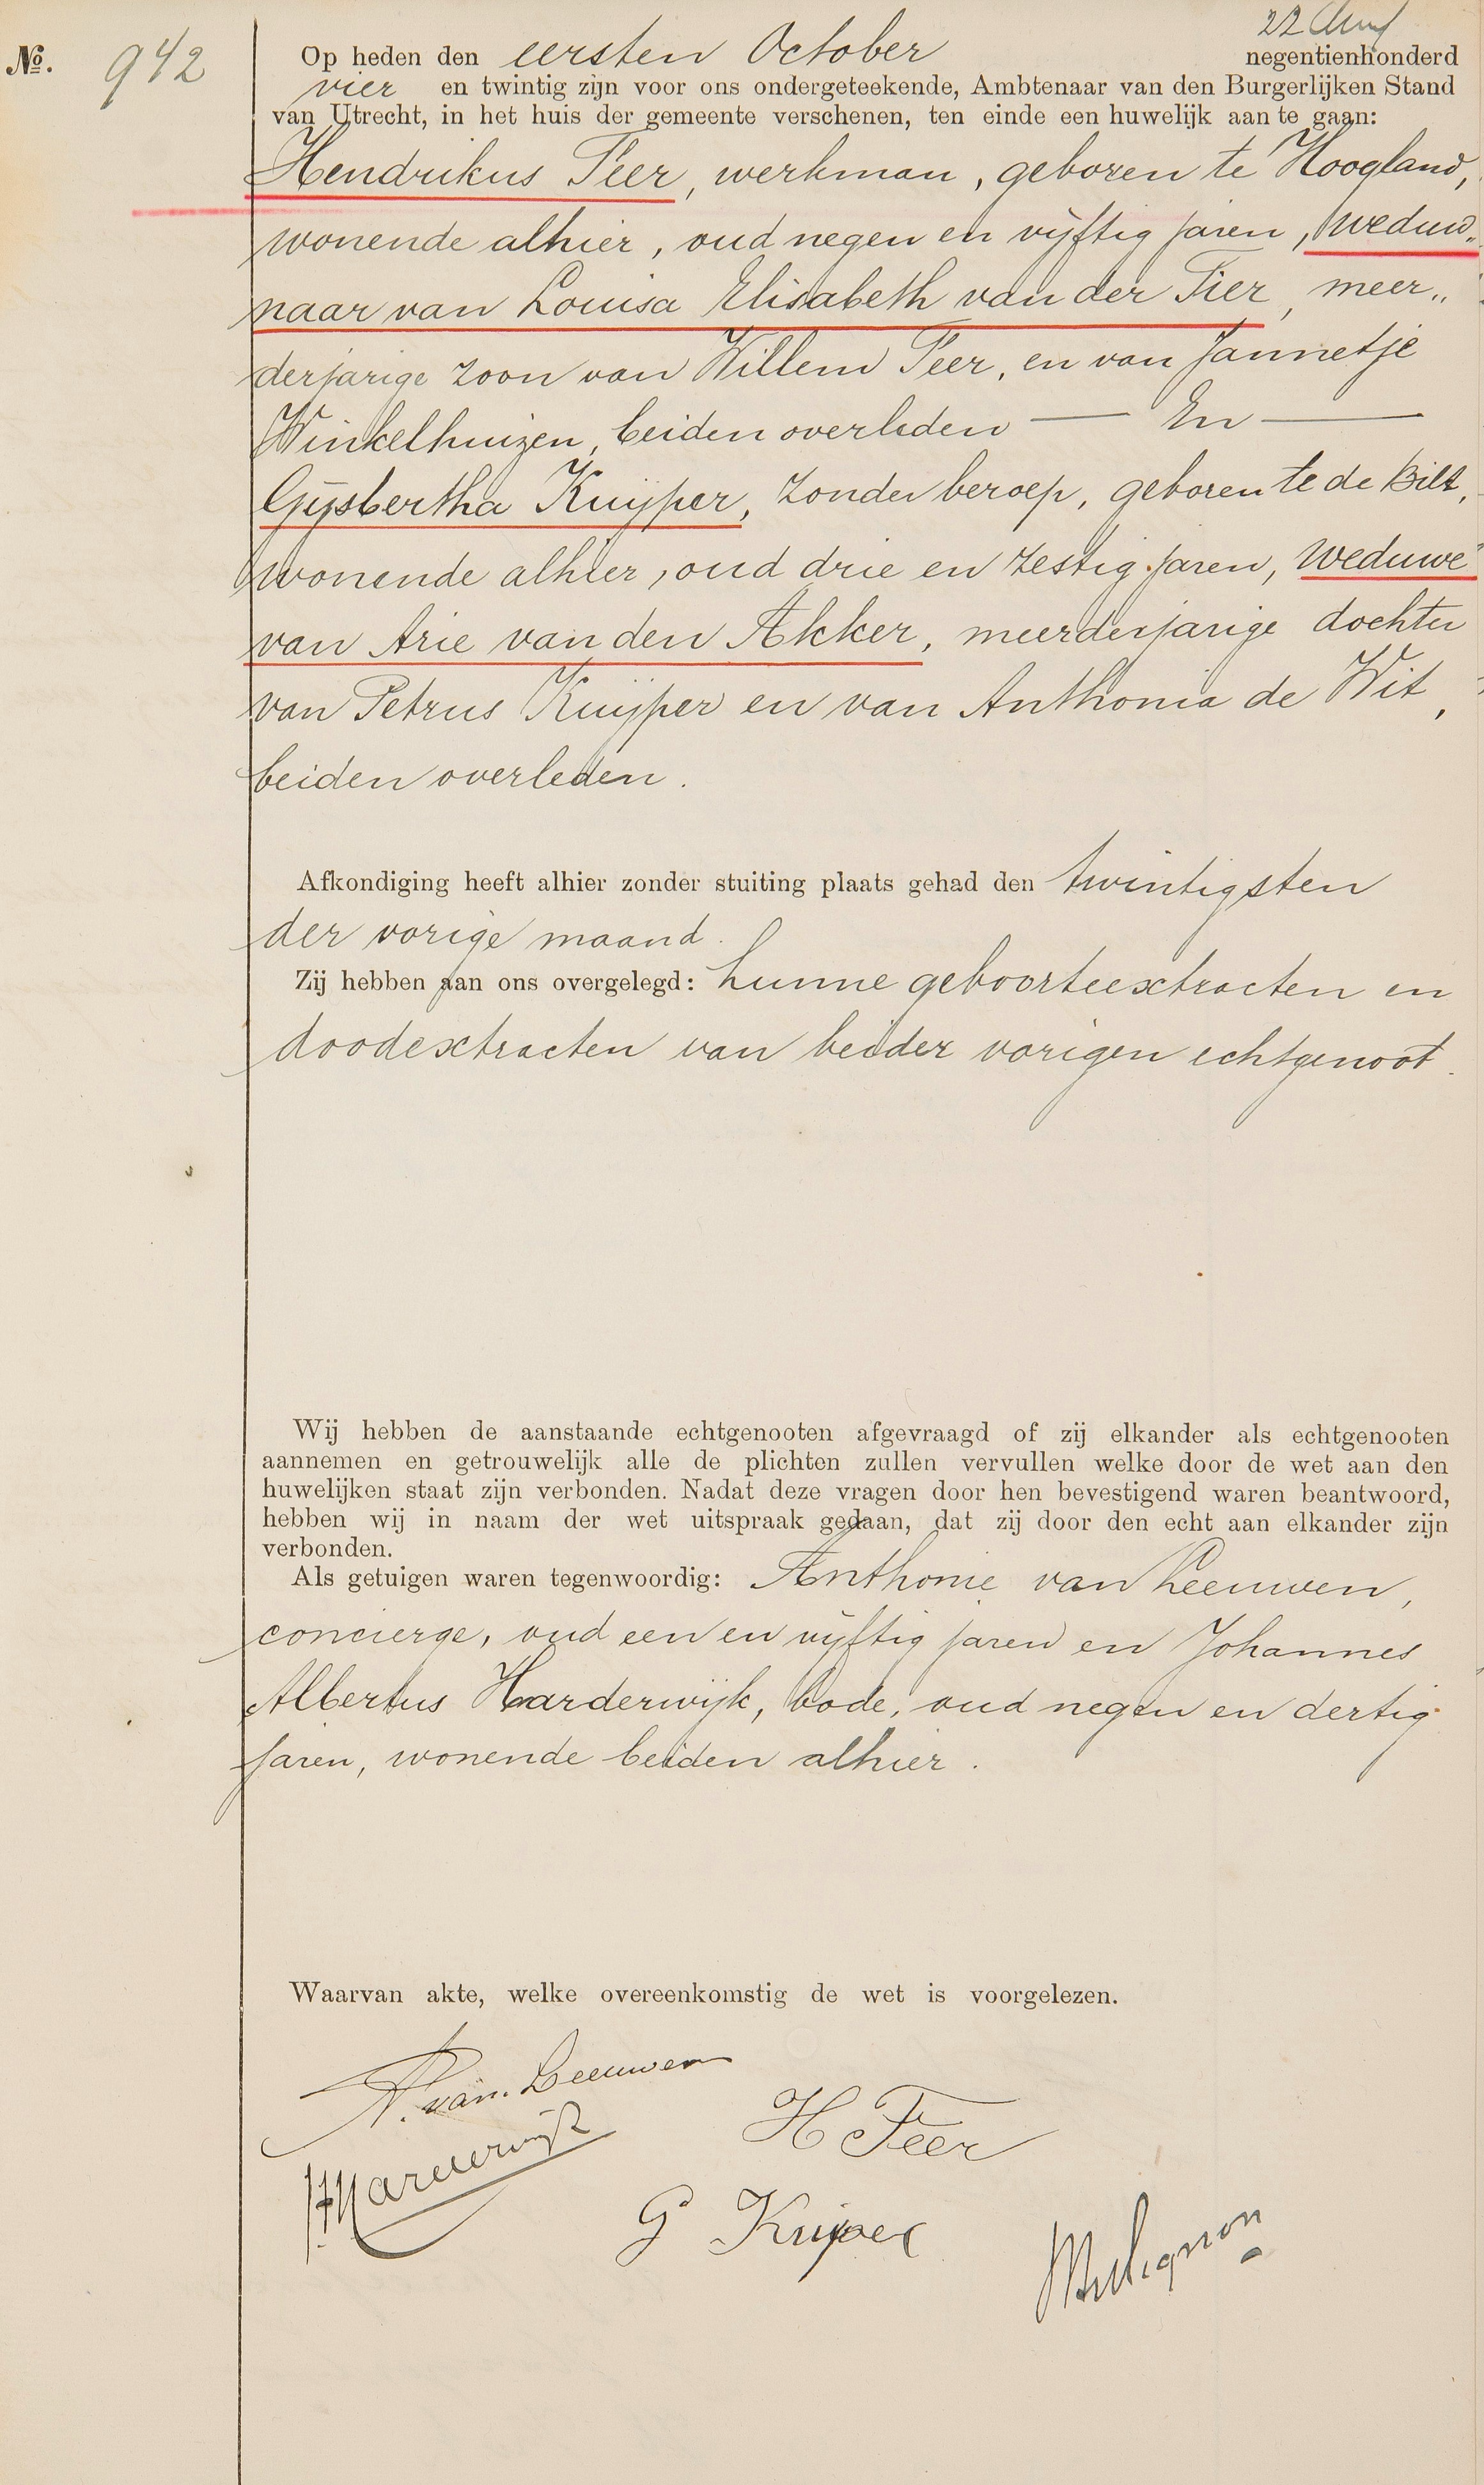 No. 942
Op heden den eersten October negentienhonderd
vier en twintig zijn voor ons ondergeteekende, Ambtenaar van den Burgerlijken Stand
van Utrecht, in het huis der gemeente verschenen, ten einde een huwelijk aan te gaan:
Hendrikus Feer, werkman, geboren te Hoogland,
wonende alhier, oud negen en vijftig jaren, weduw„
naar van Louisa Elisabeth van der Tier, meer„
derjarige zoon van Willem Feer, en van Jannetje
Winkelhuizen, beiden overleden — En —
Gijsbertha Kuijper, zonder beroep, geboren te de Bilt,
wonende alhier, oud drie en zestig jaren, weduwe
van Arie van den Akker, meerderjarige dochter
van Petrus Kuijper en van Anthonia de Wit,
beiden overleden.
Afkondiging heeft alhier zonder stuiting plaats gehad den twintigsten
der vorige maand.
Zij hebben aan ons overgelegd: hunne geboorteextracten en
doodextracten van beider vorigen echtgenoot.
Wij hebben de aanstaande echtgenooten afgevraagd of zij elkander als echtgenooten
aannemen en getrouwelijk alle de plichten zullen vervullen welke door de wet aan den
huwelijken staat zijn verbonden. Nadat deze vragen door hen bevestigend waren beantwoord,
hebben wij in naam der wet uitspraak gedaan, dat zij door den echt aan elkander zijn
verbonden.
Als getuigen waren tegenwoordig: Anthonie van Leeuwen,
concierge, oud een en vijftig jaren en Johannes
Albertus Harderwijk, bode, oud negen en dertig
jaren, wonende beiden alhier.
Waarvan akte, welke overeenkomstig de wet is voorgelezen.
A. van Leeuwen
H Feer
Harderwijk
G Kuijper